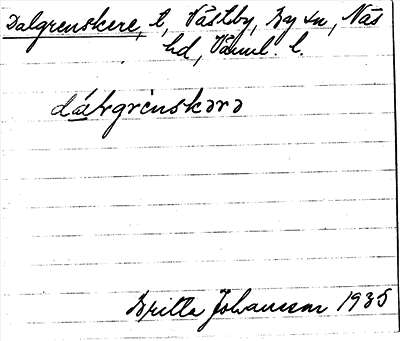 Dalgrenskere, t, Västby, By sn, Näs
hd, Värml. l.
dálgrènskərə
Britta Johansson 1935